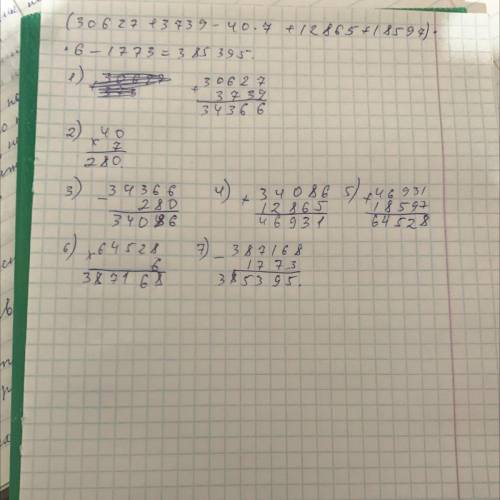 (30627 + 3739 - 40 · 7 + 12865 + 18597) ·
· 6 - 1773 = 385395.
1) + 30627
3739
34366
2) × 40
7
280.
3) - 34366
280
34086
4) + 34086
12865
46931
5) + 46931
18597
64528
6) × 64528
6
387168
7) - 387168
1773
385395.